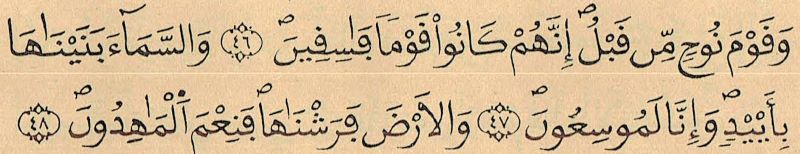 وَقَوْمَ نُوحٍ مِّن قَبْلُ إِنَّهُمْ كَانُوا۟ قَوْمًا فَٰسِقِينَ ۝٤٦ وَالسَّمَآءَ بَنَيْنَٰهَا
بِأَيْي۟دٍ وَإِنَّا لَمُوسِعُونَ ۝٤٧ وَالَارْضَ فَرَشْنَٰهَا فَنِعْمَ اَ۬لْمَٰهِدُونَ ۝٤٨